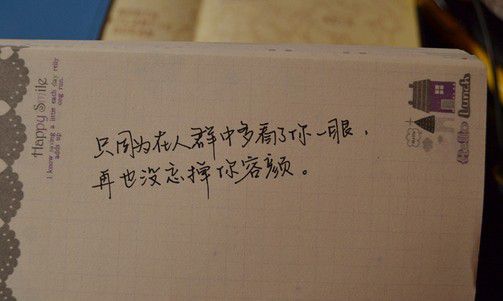 只因为在人群中多看了你一眼，
再也没忘掉你容颜。
Happy Smile
I know saving a little each day really
adds up
Hello Lunch